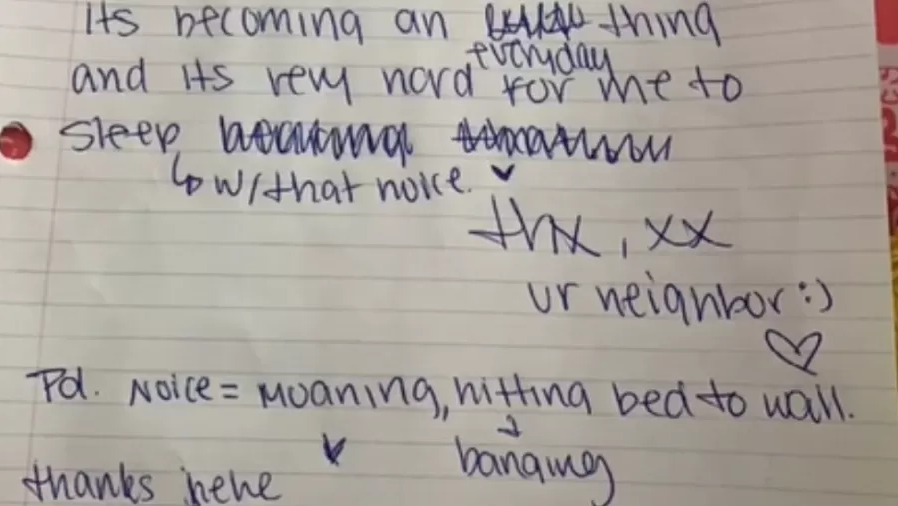 its becoming an everyday thing
and its very hard for me to
sleep
↳ w/that noice.
thx, xx
ur neighbor :)
♡
Pd. Noice = Moaning, hitting bed to wall.
banging
thanks hehe